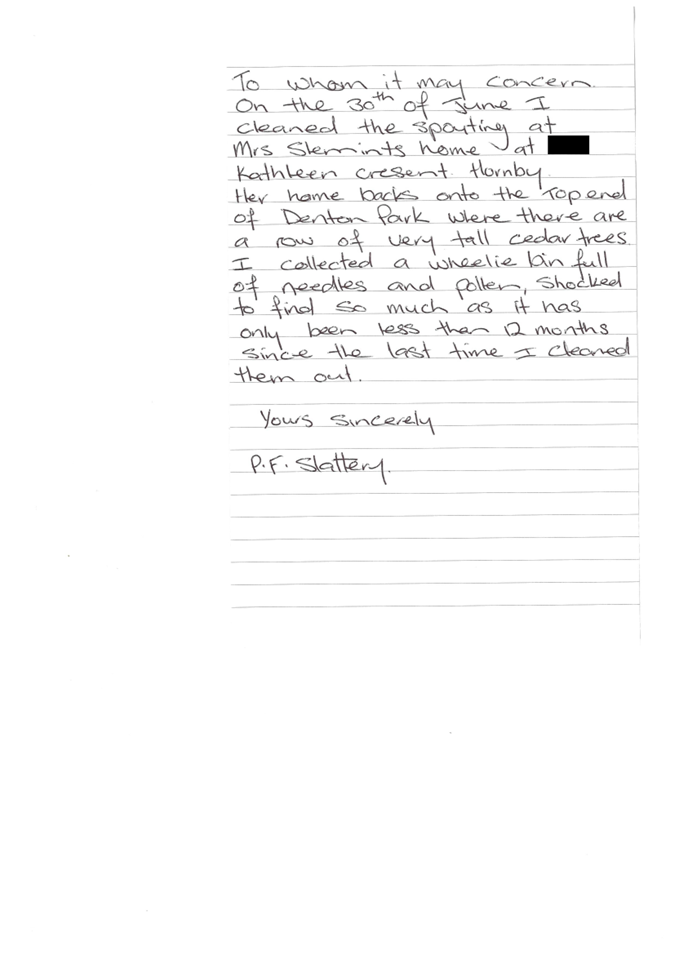 To whom it may concern.
On the 30th of June I
cleaned the spouting at
Mrs Slemints home at
Kathleen cresent Hornby.
Her home backs onto the Top end
of Denton Park where there are
a row of very tall cedar trees.
I collected a wheelie bin full
of needles and pollen, Shocked
to find so much as it has
only been less than 12 months
since the last time I cleaned
them out.
Yours sincerely
P.F. Slattery.